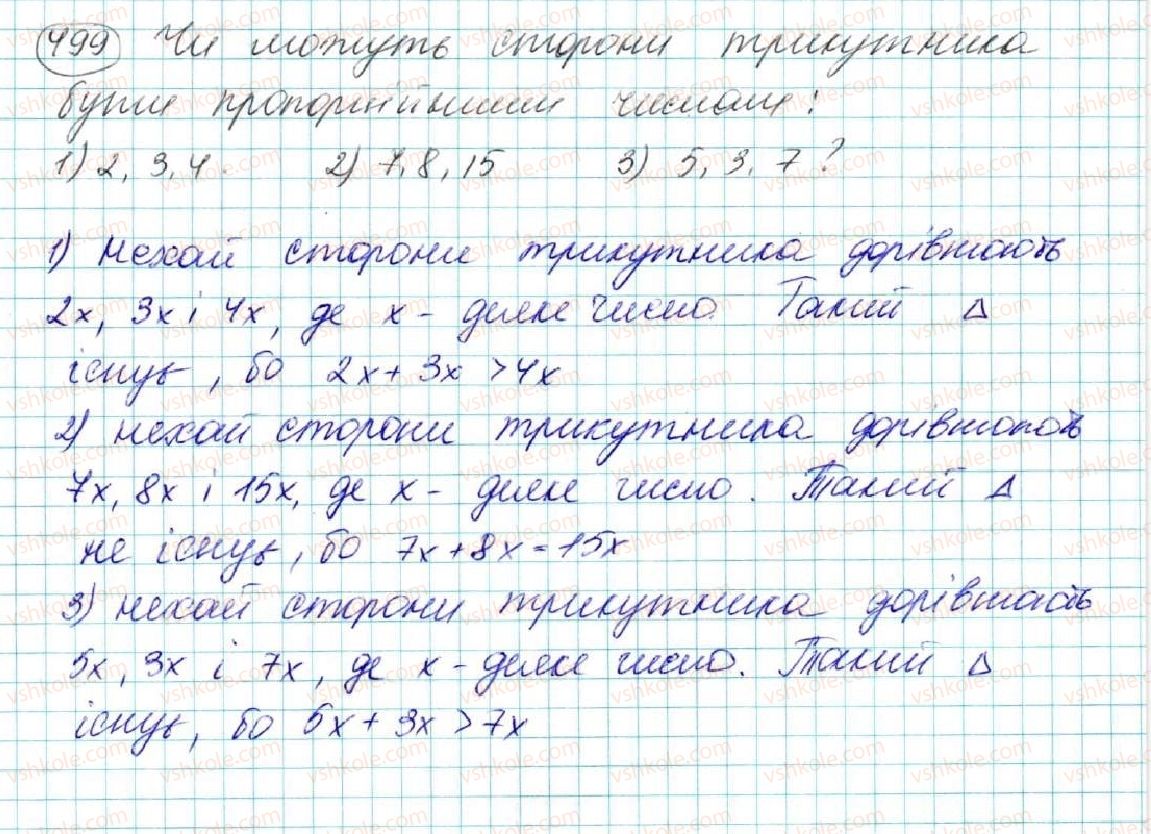 499 Чи можуть сторони трикутника
бути пропорційними числами:
1) 2, 3, 4. 2) 7, 8, 15 3) 5, 3, 7 ?
1) Нехай сторони трикутника дорівнюють
2x, 3x і 4x, де x - деяке число. Такий Δ
існує, бо 2x + 3x > 4x
2) нехай сторони трикутника дорівнюють
7x, 8x і 15x, де x - деяке число. Такий Δ
не існує, бо 7x + 8x = 15x
3) нехай сторони трикутника дорівнюють
5x, 3x і 7x, де x - деяке число. Такий Δ
існує, бо 5x + 3x > 7x